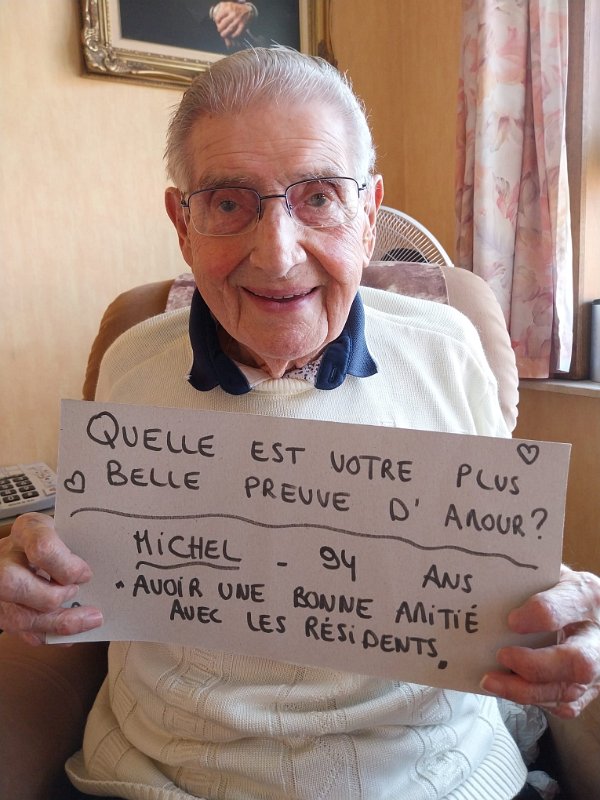 QUELLE EST VOTRE PLUS
BELLE PREUVE D'AMOUR?
MiCHEL - 94 ANS
• AVOIR UNE BONNE AMITIÉ
AVEC LES RÉSiDENTS.